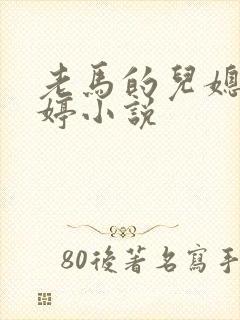 老馬的兒媳
婷小説
80後著名寫手